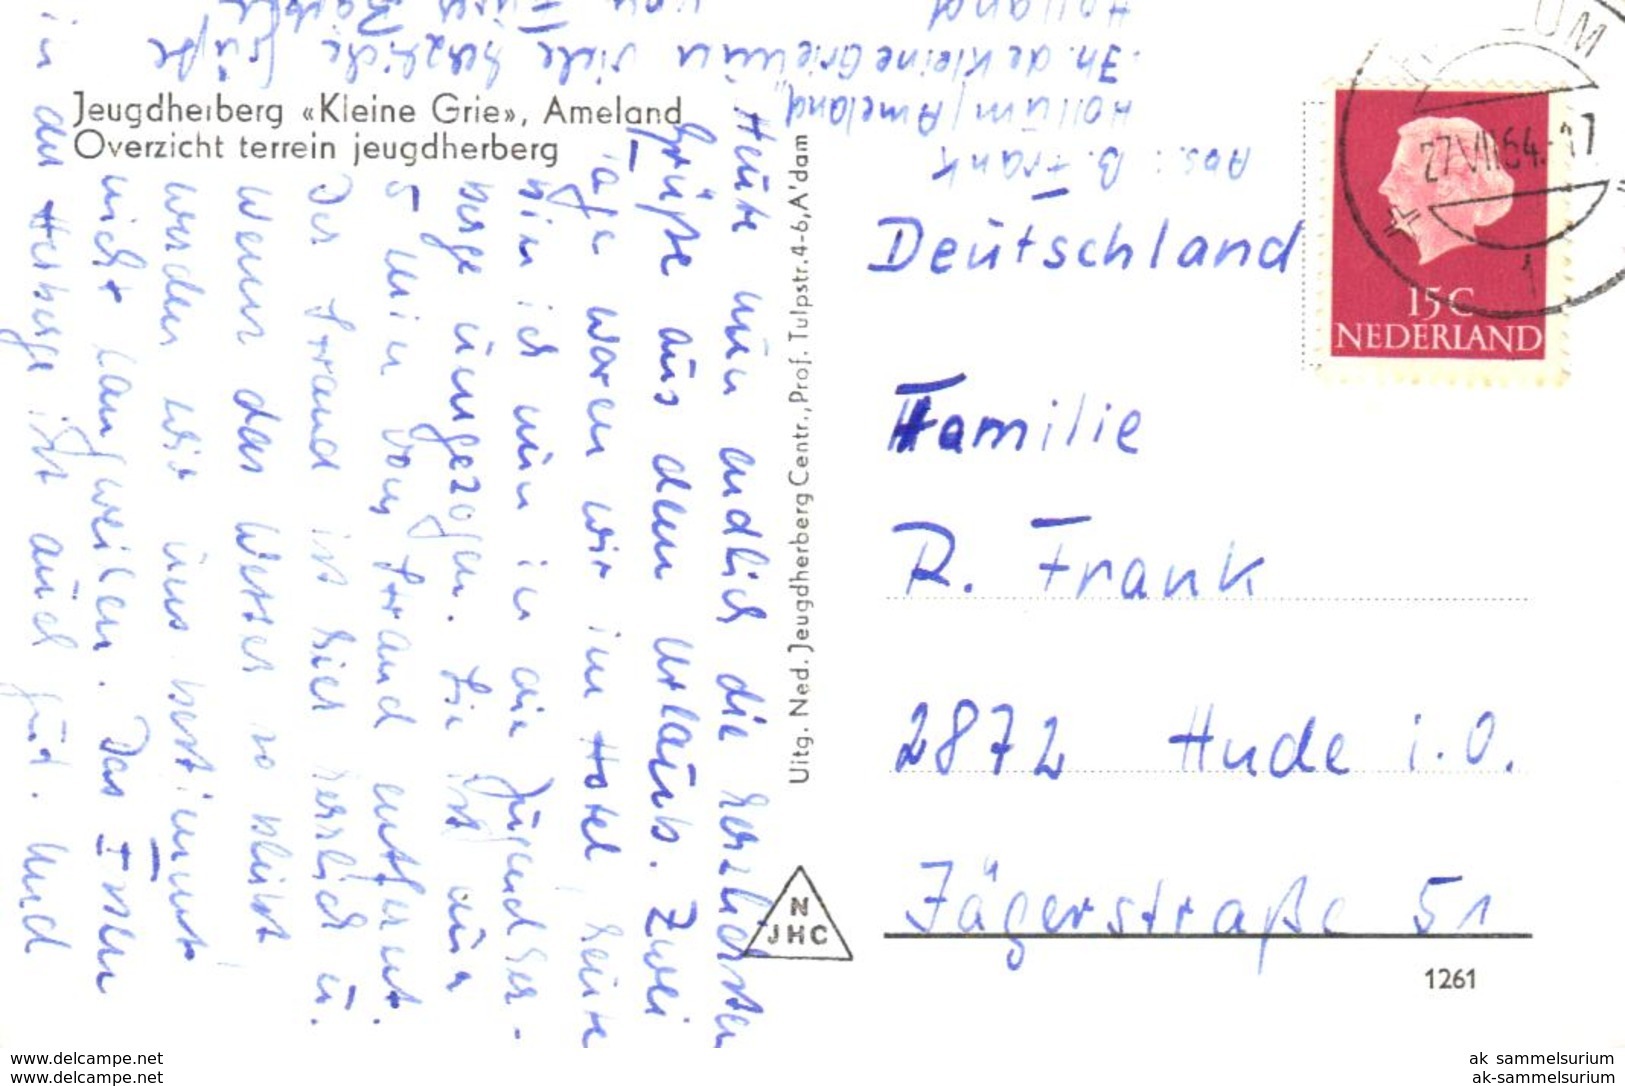 Jeugdherberg «Kleine Grie», Ameland
Overzicht terrein jeugdherberg
Heute nun endlich die herzlichsten
Grüße aus dem Urlaub. Zwei
Tage waren wir im Hotel, heute
bin ich nun in die Jugendher-
berge umgezogen. Sie ist nur
5 Min vom Strand entfernt.
Der Strand ist hier herrlich u.
wenn das Wetter so bleibt
werden wir uns bestimmt
nicht langweilen. Das Essen
in der Herberge ist auch gut. Und
viele herzliche Grüße
von Eurer
Abs.: B. Frank
Hollum/Ameland
Jh. de Kleine Grie
Holland
Uitg. Ned. Jeugdherberg Centr., Prof. Tulpstr. 4-6, A'dam
N
JHC
27 VII 64
1
15 C
NEDERLAND
Deutschland
Familie
R. Frank
2872 Hude i. O.
Jägerstraße 51
1261
www.delcampe.net
www.delcampe.net
ak_sammelsurium
ak-sammelsurium